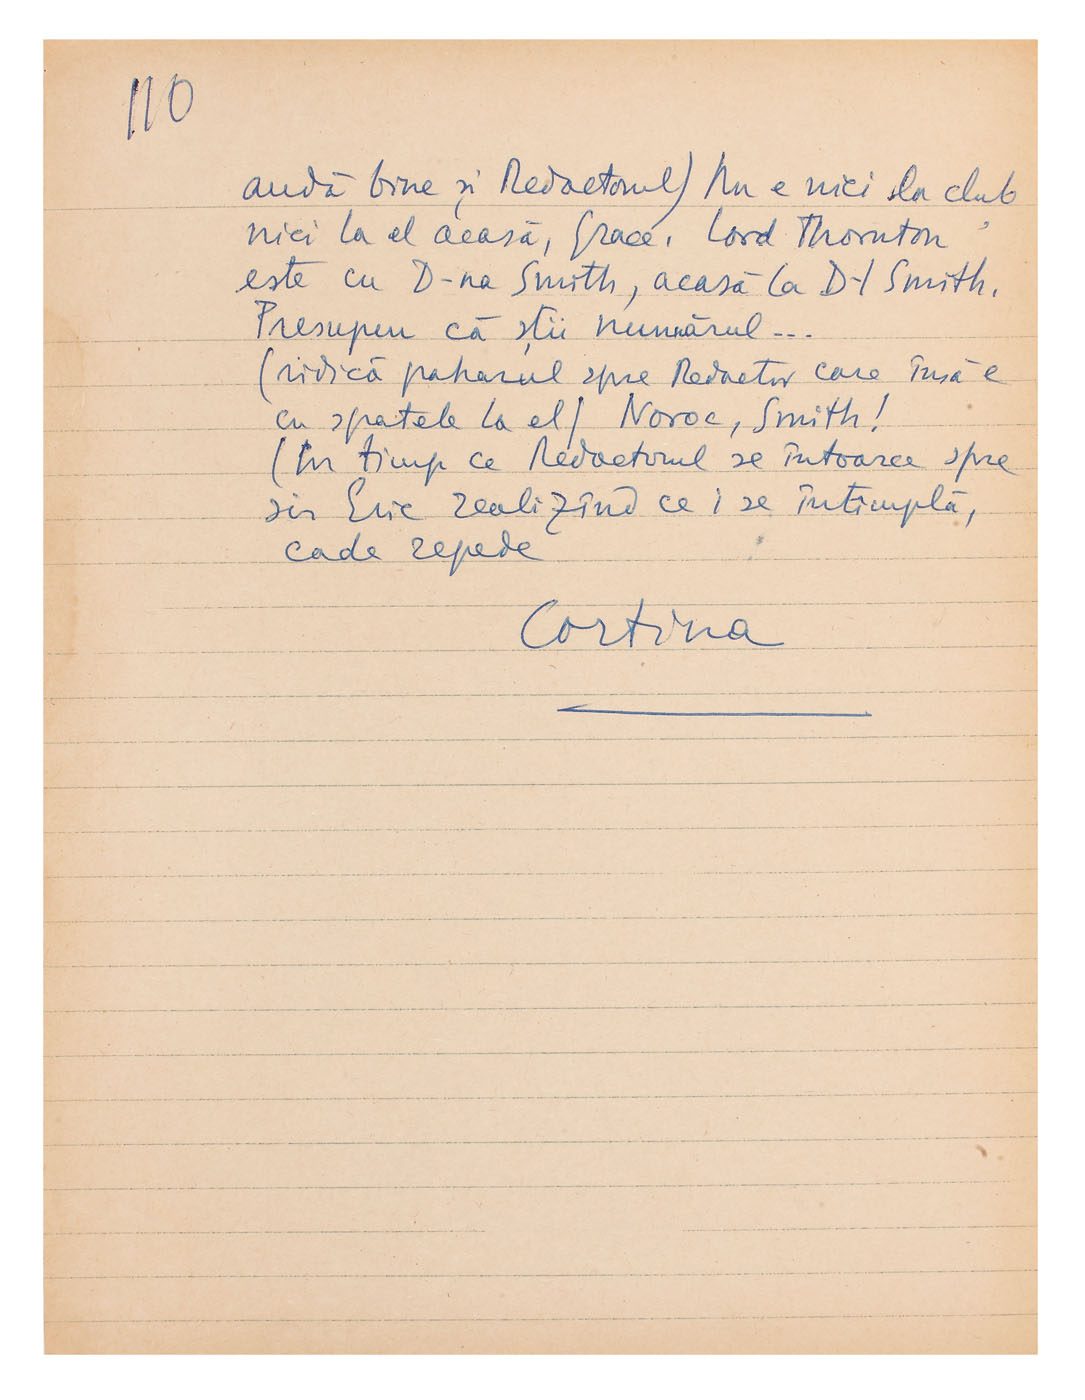 110
audă bine și Redactorul) Nu e nici la club
nici la el acasă, Grace. Lord Thornton
este cu D-na Smith, acasă la D-l Smith.
Presupun că știi numărul...
(ridică paharul spre Redactor care însă e
cu spatele la el) Noroc, Smith!
(În timp ce Redactorul se întoarce spre
sir Eric realizînd ce i se întîmplă,
cade repede
Cortina